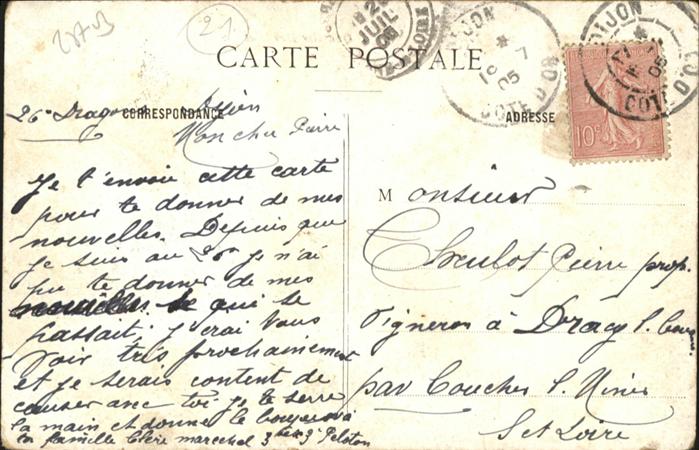 21
CARTE POSTALE
CORRESPONDANCE
ADRESSE
DIJON
COTE D'OR
DIJON
COTE D'OR
10c
26e Dragons Dijon
Mon cher Pierre
Je t'envoie cette carte
pour te donner de mes
nouvelles. Depuis que
je suis au 26 je n'ai
pu te donner de mes
nouvelles de qui se
passait. J'irai vous
voir très prochainement
et je serais content de
causer avec toi je te serre
la main et donne le bonjour à
ta famille marechal 3e Peloton
Monsieur
Pierre prop.
Vigneron à Dracy s.
par Couches l. Mines
S et Loire